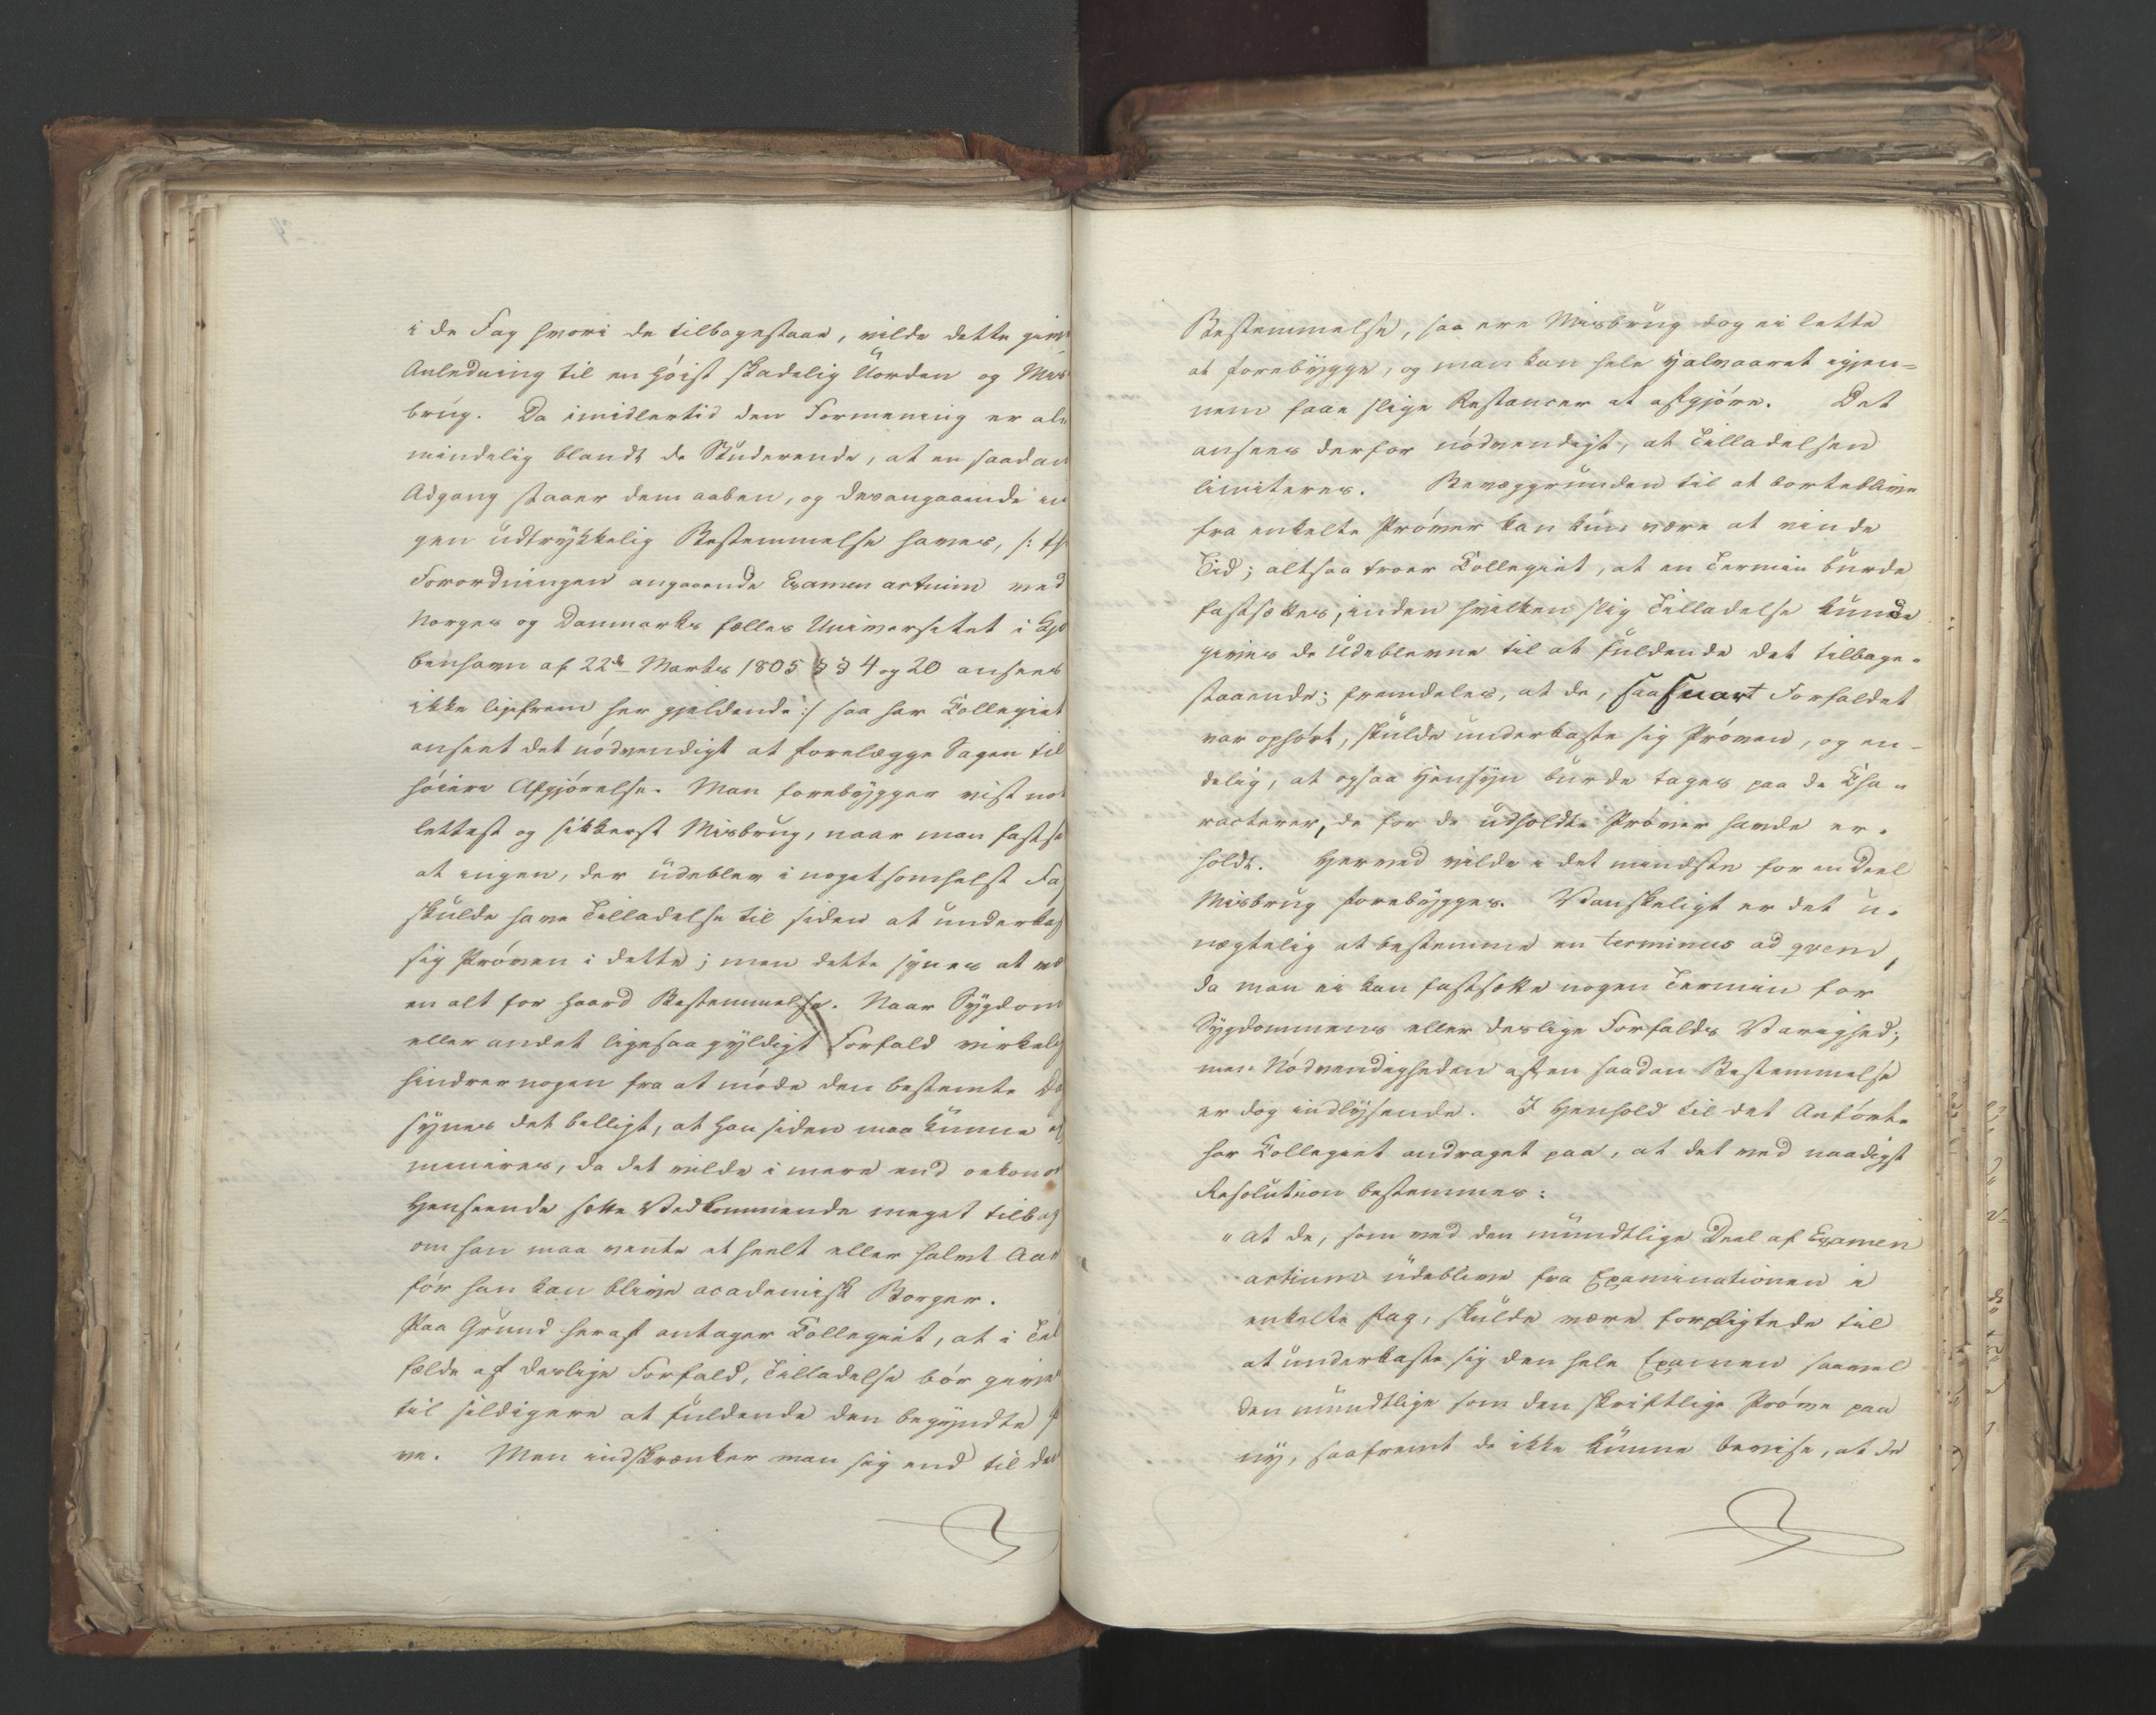 i de Fag hvori de tilbagestaae, vilde dette give
Anledning til en höist skadelig Uorden og Mis
brug. Da imidlertid den Formening er al
mindelig blandt de Studerende, at en saadan
Adgang staaer dem aaben, og desangaaende in
gen udtrykkelig Bestemmelse haves, /: thi
Forordningen angaaende Examen artium ved
Norges og Danmarks fælles Universitet i Kjö
benhavn af 22de Marts 1805 §§ 4 og 20 ansees
ikke ligefrem her gjeldende :/ saa har Collegiet
anseet det nödvendigt at forelægge Sagen til
höiere Afgjörelse. Man forebygger vist nok
lettest og sikkerst Misbrug, naar man fastsæ
at ingen, der udeblev i nogetsomhelst Fag
skulde have Tilladelse til siden at underkas
sig Pröven i dette; men dette synes at væ
en alt for haard Bestemmelse. Naar Sygdom
eller andet ligesaa gyldigt Forfald virkelig
hindrer nogen fra at möde den bestemte Dag
synes det billigt, at han siden maa kunne ex
mineres, da det vilde i mere end oekono
Henseende sætte Vedkommende meget tilbage
om han maa vente et heelt eller halvt Aar
för han kan blive academisk Borger.
Paa Grund heraf antager Collegiet, at i Til
fælde af deslige Forfald, Tilladelse bör gives
til sildigere at fuldende den begyndte P
ve. Men indskrænker man sig end til den
Bestemmelse, saa ere Misbrug dog ei lette
at forebygge, og man kan hele Halvaaret igjen=
nem faae slige Restancer at afgjöre. Det
ansees derfor nödvendigt, at Tilladelsen
limiteres. Bevæggrunden til at borteblive
fra enkelte Pröver kan kun være at vinde
Tid; altsaa troer Collegiet, at en Termin burde
fastsættes, inden hvilken slig Tilladelse kunde
gives de Udeblevne til at fuldende det tilbage=
staaende; fremdeles, at de, saasnart Forfaldet
var ophört, skulde underkaste sig Pröven, og en=
delig, at ogsaa Hensyn burde tages paa de Cha=
racterer, de for de udholdte Pröver havde er=
holdt. Herved vilde i det mindste for en Deel
Misbrug forebygges. Vanskeligt er det u=
nægtelig at bestemme en terminus ad qvem,
da man ei kan fastsætte nogen Termin for
Sygdommens eller deslige Forfalds Varighed;
men Nödvendigheden af en saadan Bestemmelse
er dog indlysende. I Henhold til det Anförte
har Collegiet andraget paa, at det ved naadigst
Resolution bestemmes:
"at de, som ved den mundtlige Deel af Examen
artium udeblive fra Examinationen i
enkelte Fag, skulde være forpligtede til
at underkaste sig den hele Examen saavel
den mundtlige som den skriftlige Pröve paa
ny, saafremt de ikke kunne bevise, at de